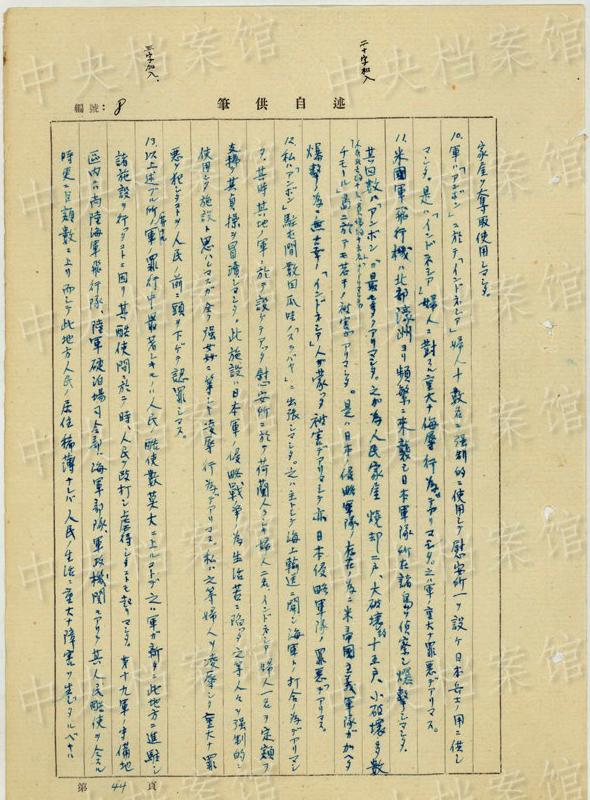 中央档案馆
三字加入
二十字加入
編號：8
筆供自述
家屋ヲ奪取使用シマシタ。
10. 軍ハ「アンボン」ニ於テ「インドネシア」婦人十数名ヲ強制的ニ使用シテ慰安所一ヲ設ケ日本兵士ノ用ニ供シ
マシタ。是ハ「インドネシア」婦人ニ対スル重大ナ侮辱行為デアリマシタ。之ハ軍ノ重大ナ罪悪デアリマス。
11. 米国軍飛行機ハ北部濠洲ヨリ頻繁ニ来襲シ日本軍隊所在諸島ヲ偵察シ爆撃シマシタ。
其回数ハ「アンボン」ハ最モ多クアリマシタ。之ガ為人民家屋焼却二戸、大破壊約十五戸、小破壊多数
チモール島ニ於テモ若干ノ被害ガアリマシタ。是ハ日本ノ侵略軍隊ノ存在ノ為ニ米帝国主義軍隊ガ加ヘタ
爆撃ノ為ニ無辜ノ「インドネシア」人ガ蒙ッタ被害デアリマシテ亦日本侵略軍隊ノ罪悪デアリマス。
12. 私ハ「アンボン」駐屯間数回爪哇「スラバヤ」ニ出張シマシタ。之ハ主トシテ海上輸送ニ関シ海軍トノ打合ノ為デアリマシ
タ。其時其地ノ軍ニ於テ設ケテアッタ慰安所ニ於テ荷蘭人ラシキ婦人二名、インドネシヤ婦人一名ヲ定額ヲ
支拂ヒ其貞操ヲ冒瀆シマシタ。此施設ハ日本軍ノ侵略戦争ノ為生活苦ニ陥ッタ之等人々ヲ強制的ニ
使用シタ施設ト思ハレマスガ全ク強姦ニ等シキ凌辱行為デアリマス。私ハ之等婦人ヲ凌辱シタ重大ナ罪
悪ヲ犯シタコトヲ人民ノ前ニ頭ヲ下ゲテ認罪シマス。
13. 以上述ブル所ノ軍ノ罪行中最モ著シキモノハ人民ノ酷使数莫大ニ上ルコトデ之ハ軍ガ新タニ此地方ニ進駐シ
諸施設ヲ行ッタコトニ因リ其酷使間ニ於テ時ニ人民ヲ殴打シ虐待シタコトモ起リマシタ。第十九軍ノ守備地
区内ニハ尚陸海軍飛行隊、陸軍碇泊場司令部、海軍部隊、軍政機関モアリテ其人民酷使ヲ合スル
時更ニ巨額数ニ上リ而シテ此地方人民ノ居住稀薄ナレバ人民生活ニ重大ナ障害ヲ
第 44 頁